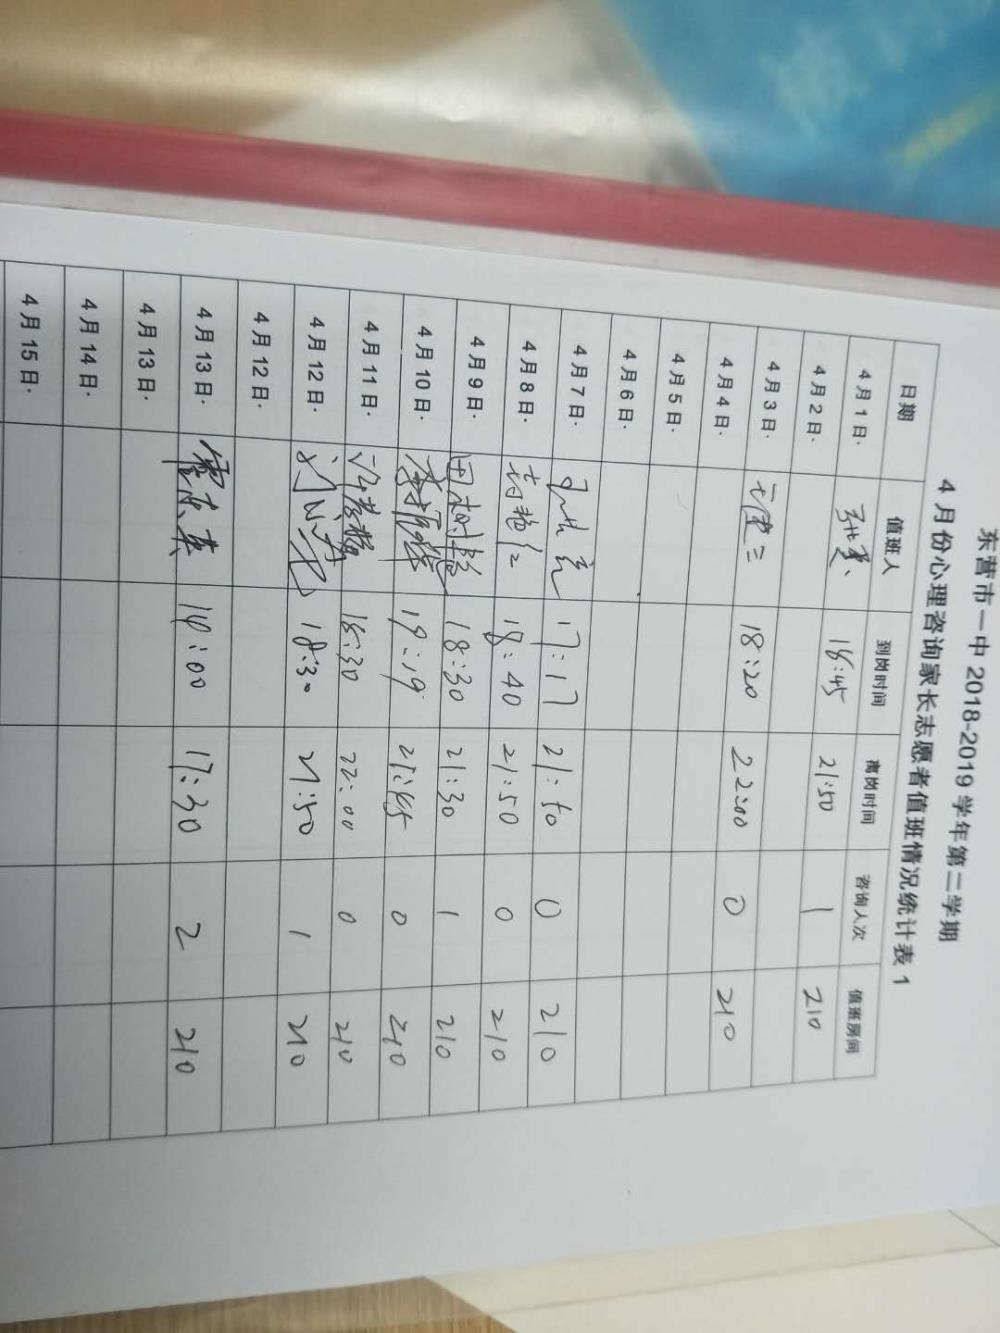 东营市一中 2018-2019 学年第二学期
4 月份心理咨询家长志愿者值班情况统计表 1
日期 值班人 到岗时间 离岗时间 咨询人次 值班房间
4 月 1 日 18:45 21:50 1 210
4 月 2 日
4 月 3 日 18:20 22:00 0 210
4 月 4 日
4 月 5 日
4 月 6 日
4 月 7 日 17:17 21:50 0 210
4 月 8 日 18:40 21:50 0 210
4 月 9 日 18:30 21:30 1 210
4 月 10 日 19:19 21:45 0 210
4 月 11 日 18:30 22:00 0 210
4 月 12 日 18:30 21:50 1 210
4 月 12 日
4 月 13 日 14:00 17:30 2 210
4 月 13 日
4 月 14 日
4 月 15 日